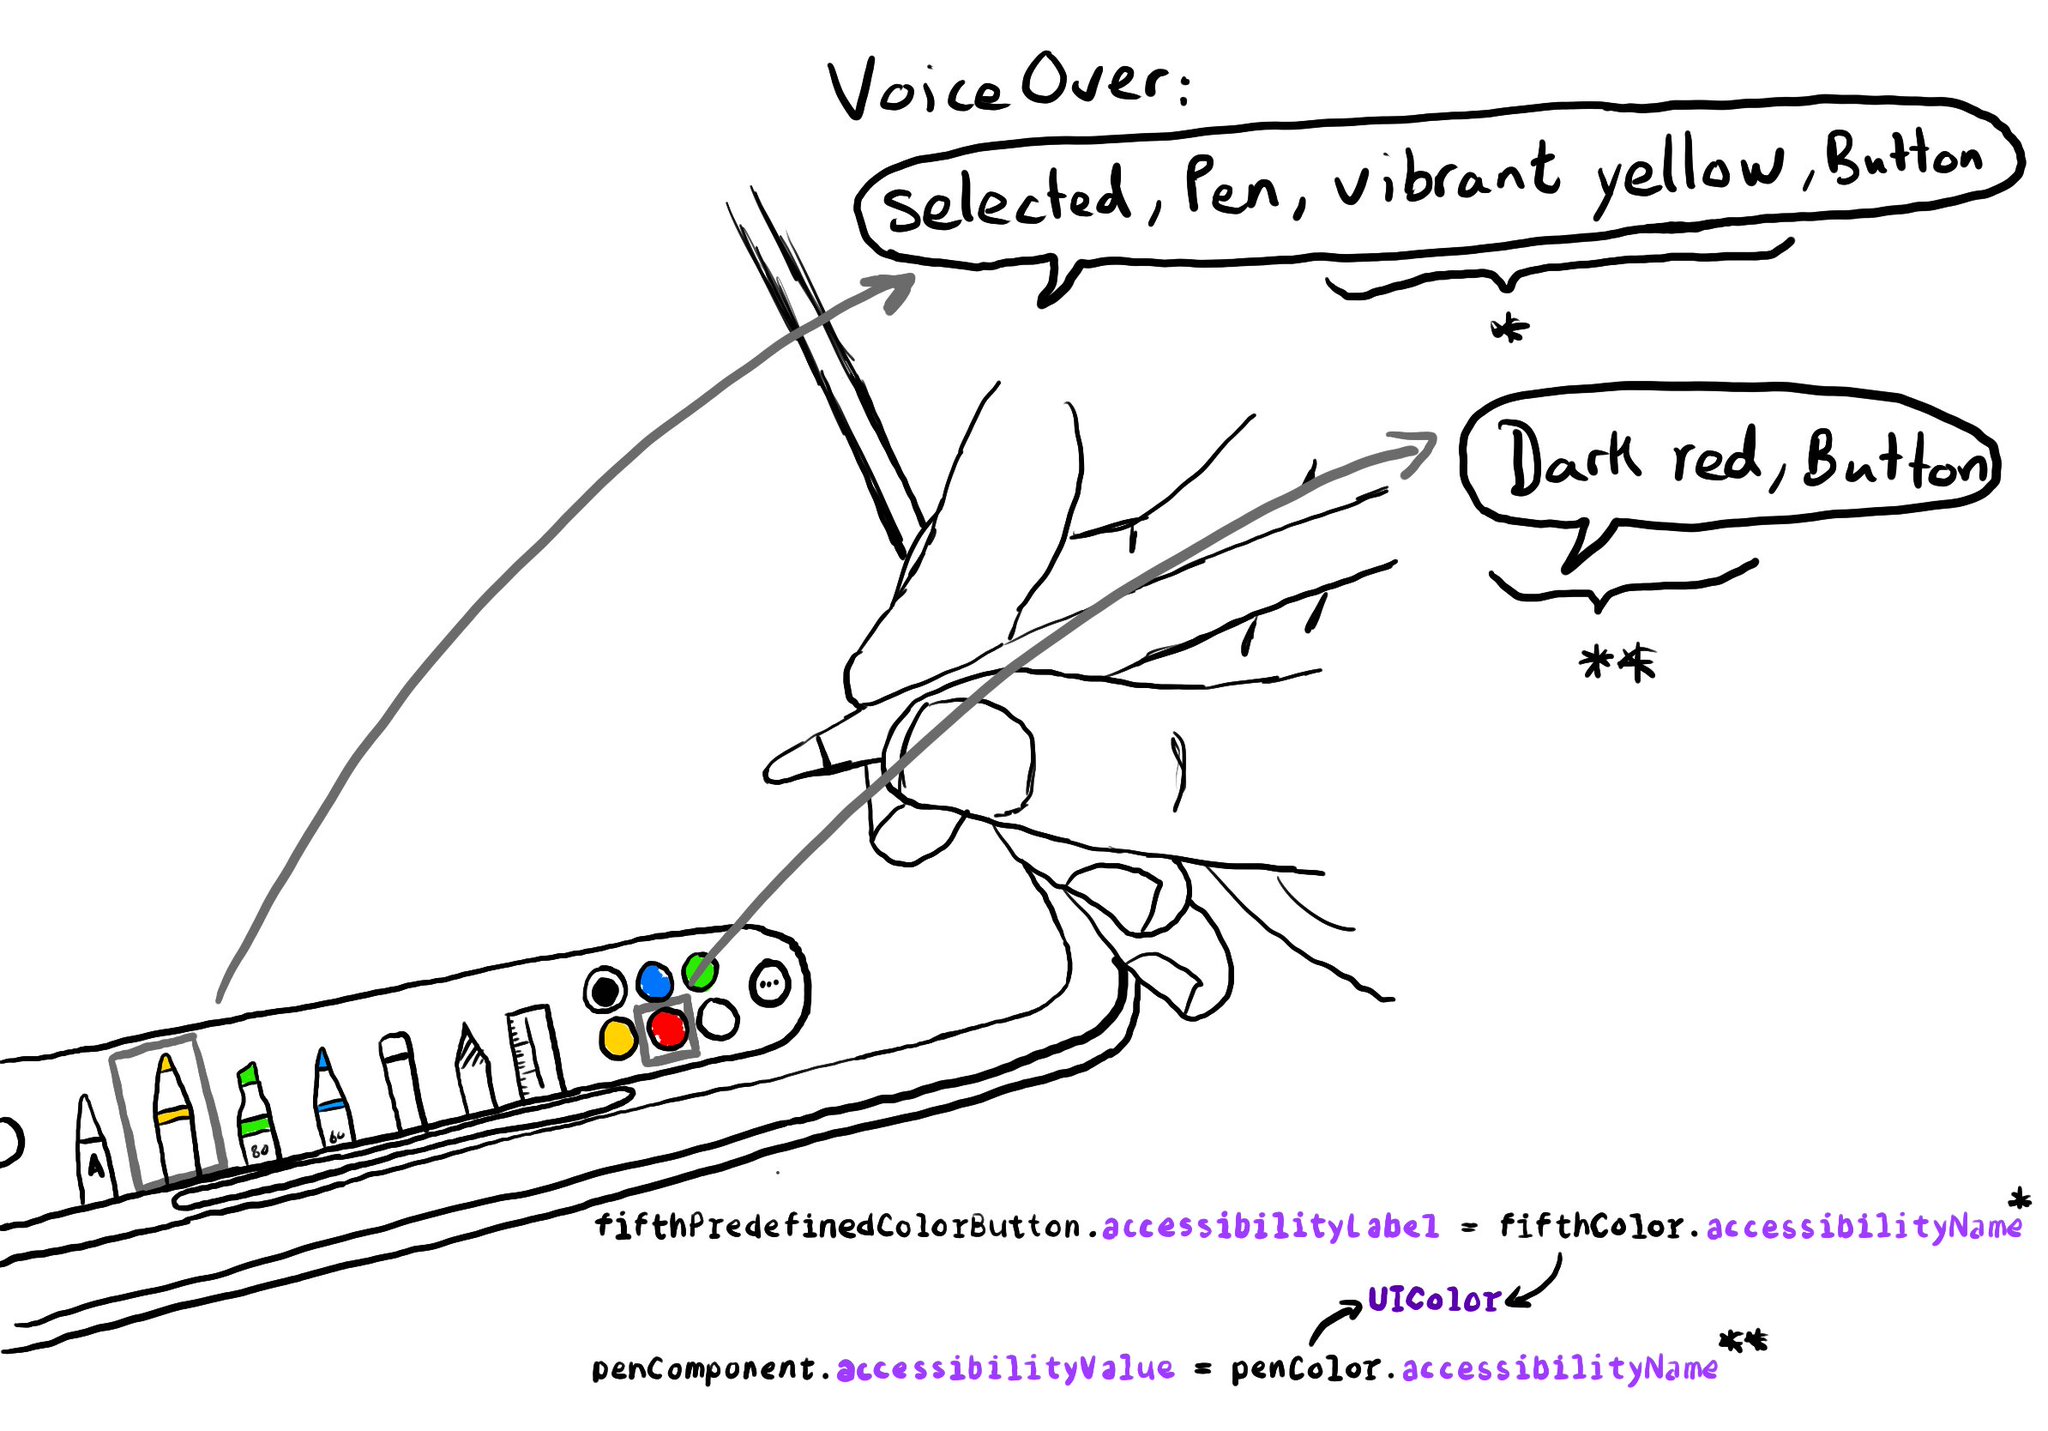 VoiceOver:
selected, Pen, vibrant yellow, Button
*
Dark red, Button
**
A
80
60
fifthPredefinedColorButton.accessibilityLabel = fifthColor.accessibilityName*
UIColor
penComponent.accessibilityValue = penColor.accessibilityName**